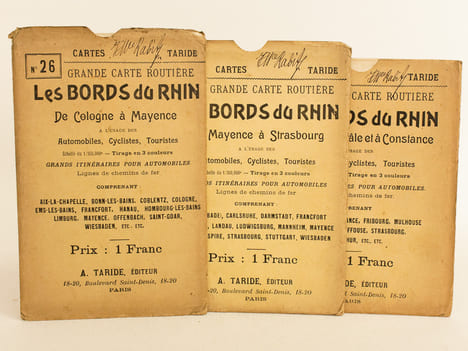 CARTES TARIDE
N° 26
GRANDE CARTE ROUTIÈRE
Les BORDS du RHIN
De Cologne à Mayence
A L'USAGE DES
Automobiles, Cyclistes, Touristes
Tirage en 3 couleurs
GRANDS ITINÉRAIRES POUR AUTOMOBILES
Lignes de chemins de fer
COMPRENANT
AIX-LA-CHAPELLE, BONN-LES-BAINS, COBLENTZ, COLOGNE,
EMS-LES-BAINS, FRANCFORT, HANAU, HOMBOURG-LES-BAINS
LIMBURG, MAYENCE, OFFENBACH, SAINT-GOAR,
WIESBADEN, ETC., ETC.
Prix : 1 Franc
A. TARIDE, ÉDITEUR
18-20, Boulevard Saint-Denis, 18-20
PARIS
CARTES TARIDE
GRANDE CARTE ROUTIÈRE
BORDS du RHIN
Mayence à Strasbourg
A L'USAGE DES
Automobiles, Cyclistes, Touristes
Tirage en 3 couleurs
ITINÉRAIRES POUR AUTOMOBILES
Lignes de chemins de fer
COMPRENANT
CARLSRUHE, DARMSTADT, FRANCFORT
LANDAU, LUDWIGSBURG, MANNHEIM, MAYENCE
SPIRE, STRASBOURG, STUTTGART, WIESBADEN
Prix : 1 Franc
A. TARIDE, ÉDITEUR
18-20, Boulevard Saint-Denis, 18-20
PARIS
TARIDE
CARTE ROUTIÈRE
BORDS du RHIN
et à Constance
A L'USAGE DES
Cyclistes, Touristes
Tirage en 3 couleurs
POUR AUTOMOBILES
chemins de fer
COMPRENANT
FRIBOURG, MULHOUSE
STRASBOURG,
ETC., ETC.
: 1 Franc
TARIDE, ÉDITEUR
Boulevard Saint-Denis, 18-20
PARIS